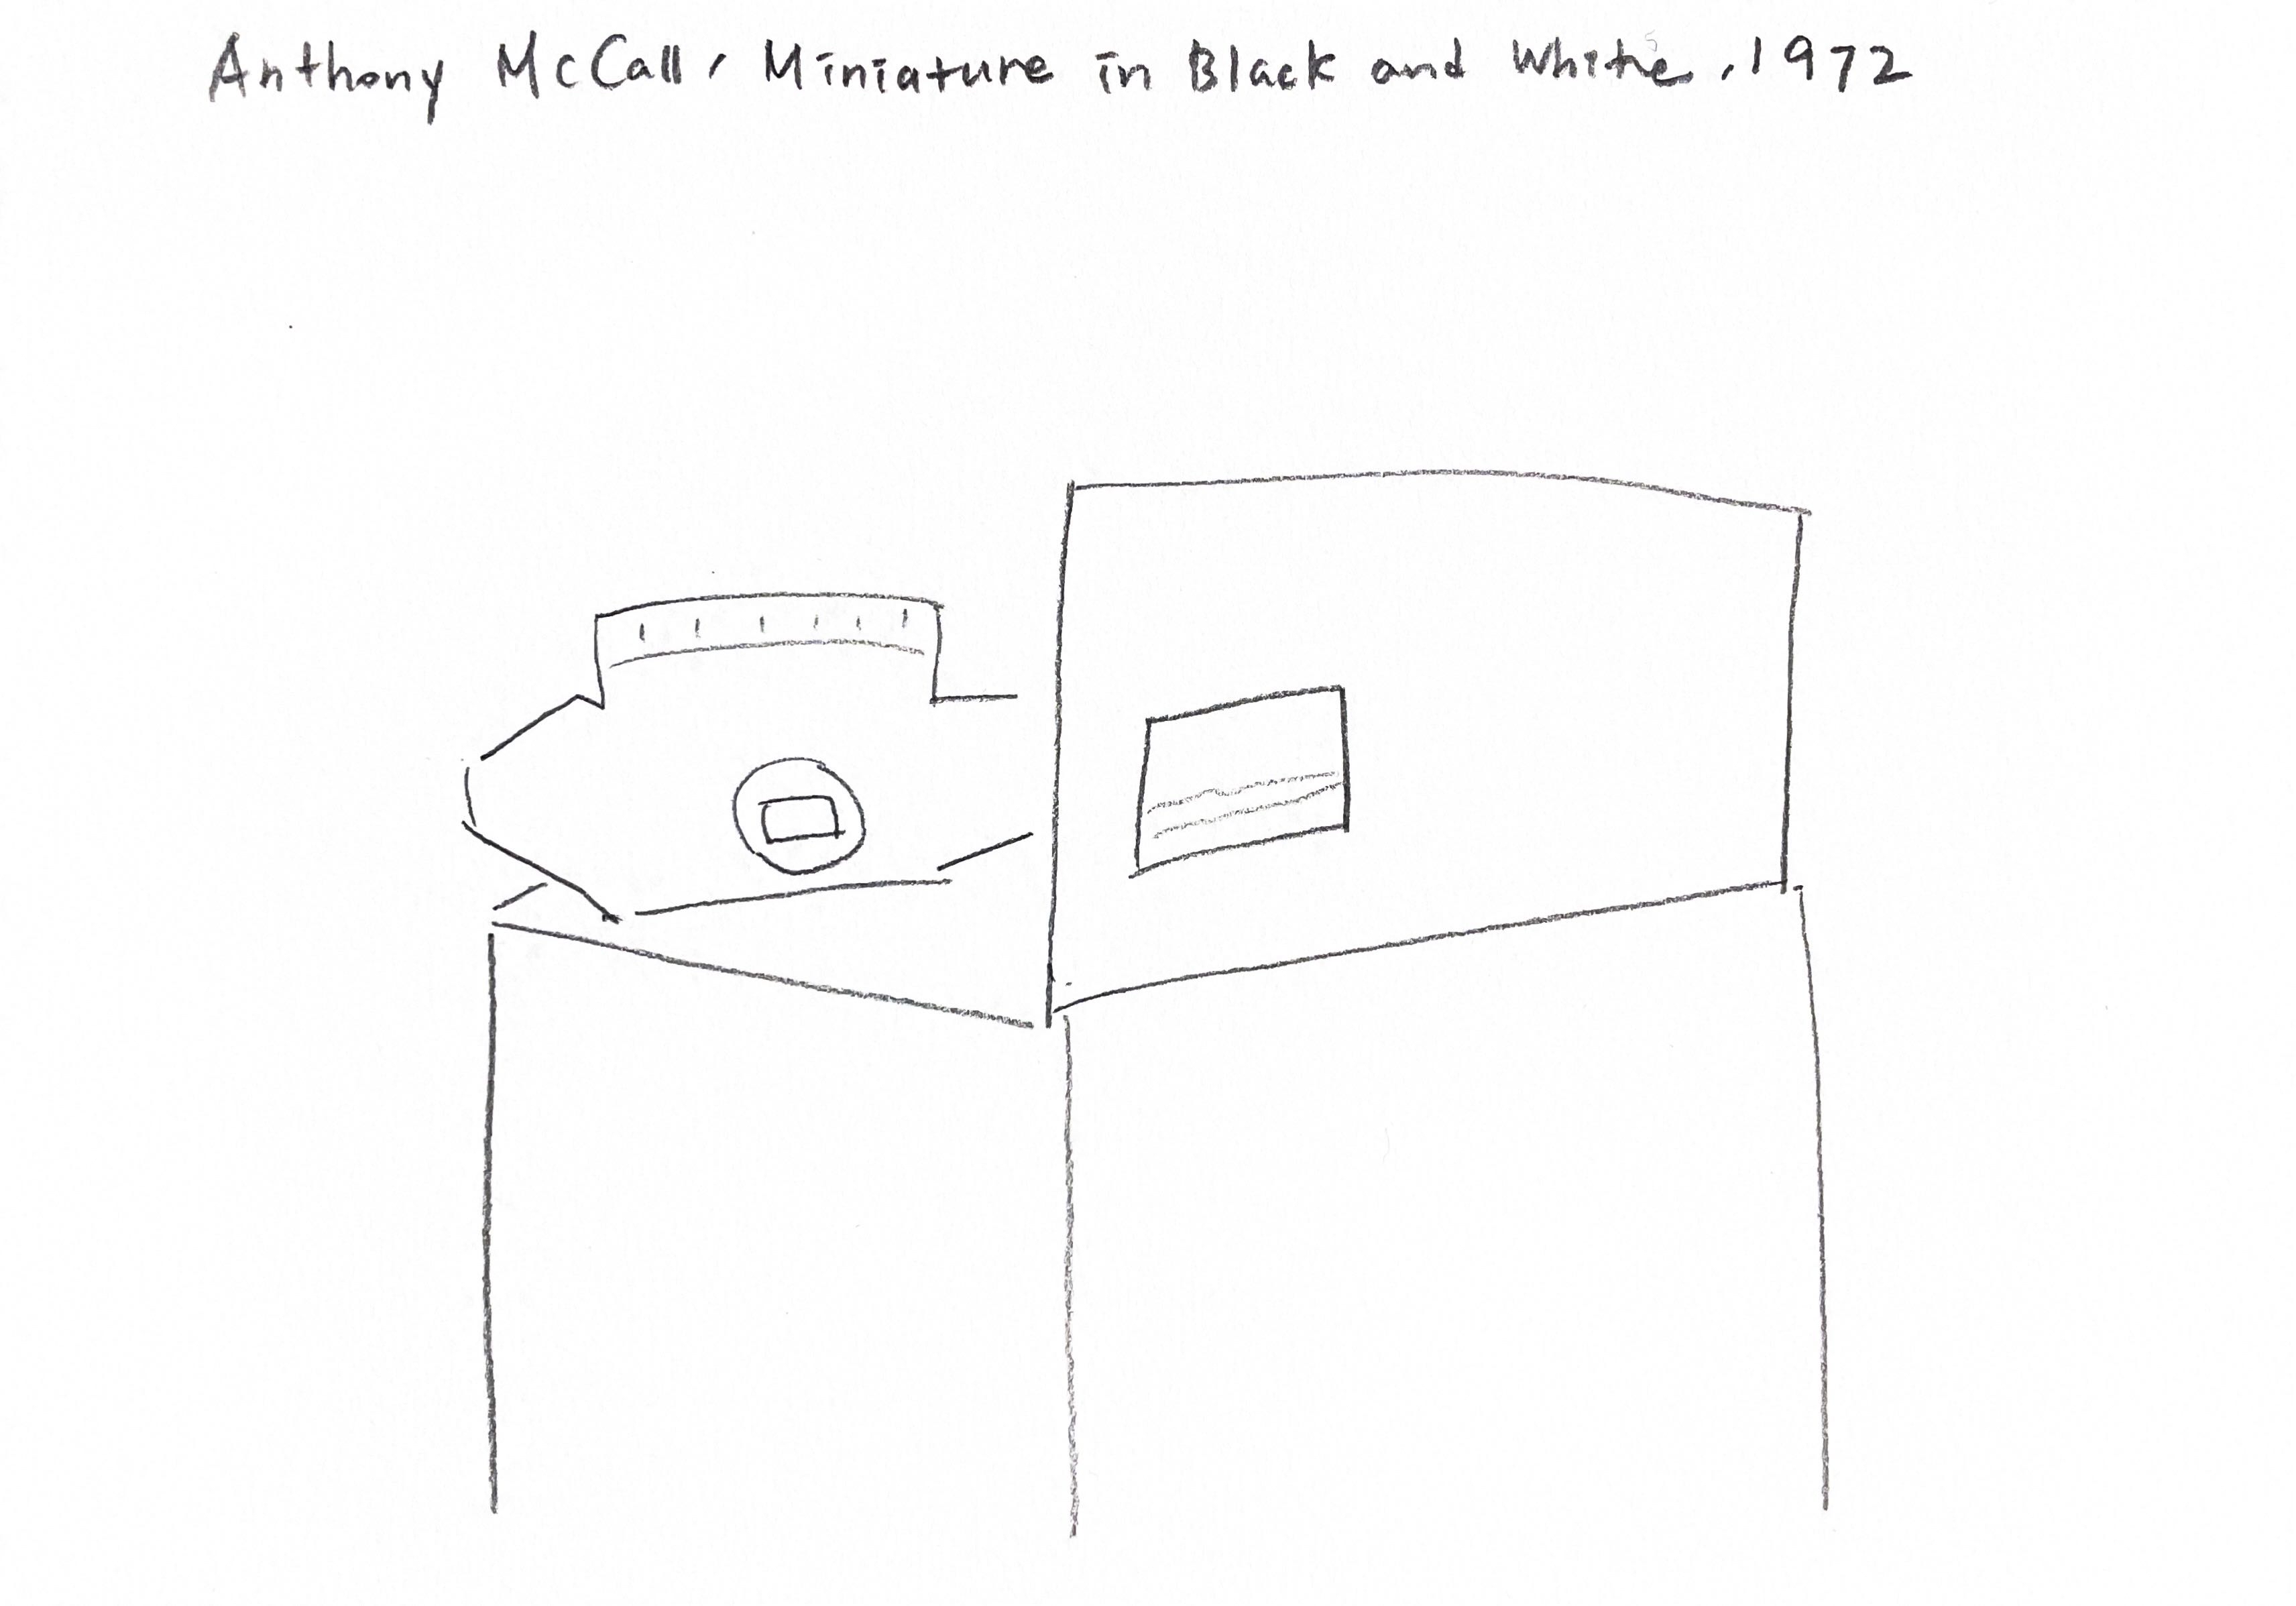 Anthony McCall, Miniature in Black and White, 1972